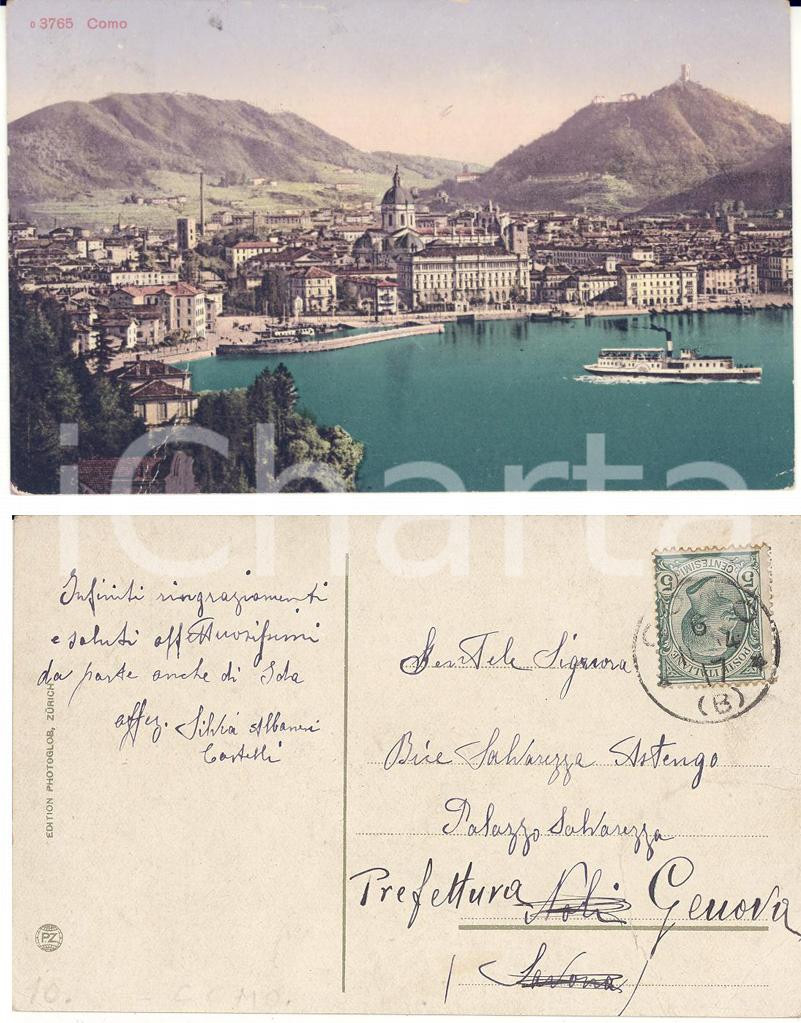 D 3765 Como
iCharta
Infiniti ringraziamenti
e saluti affettuosissimi
da parte anche di Ida
affez. Silvia Albanesi
Castelli
EDITION PHOTOGLOB, ZÜRICH
PZ
10. - COMO.
POSTE ITALIANE
CENTESIMI
5 5
6
17
(B)
Gentele Signora
Bice Salvarezza Astengo
Palazzo Salvarezza
Prefettura Noli Genova
(Savona)